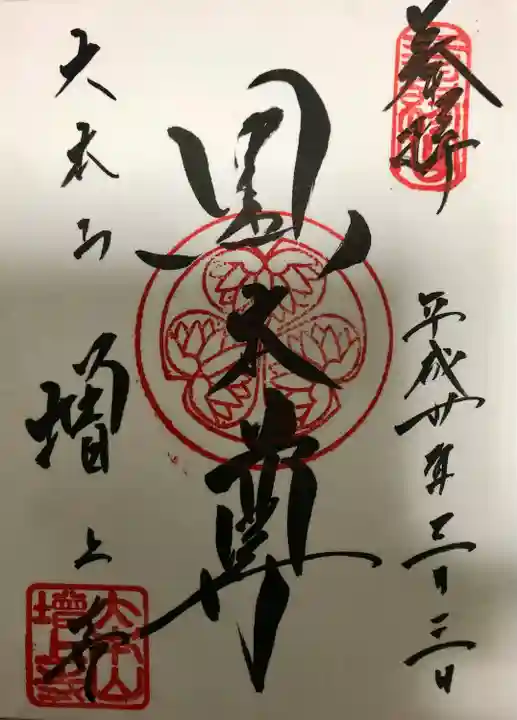 奉拝
平成卅年三月三日
黒本尊
大本山 増上寺
大本山
增上寺